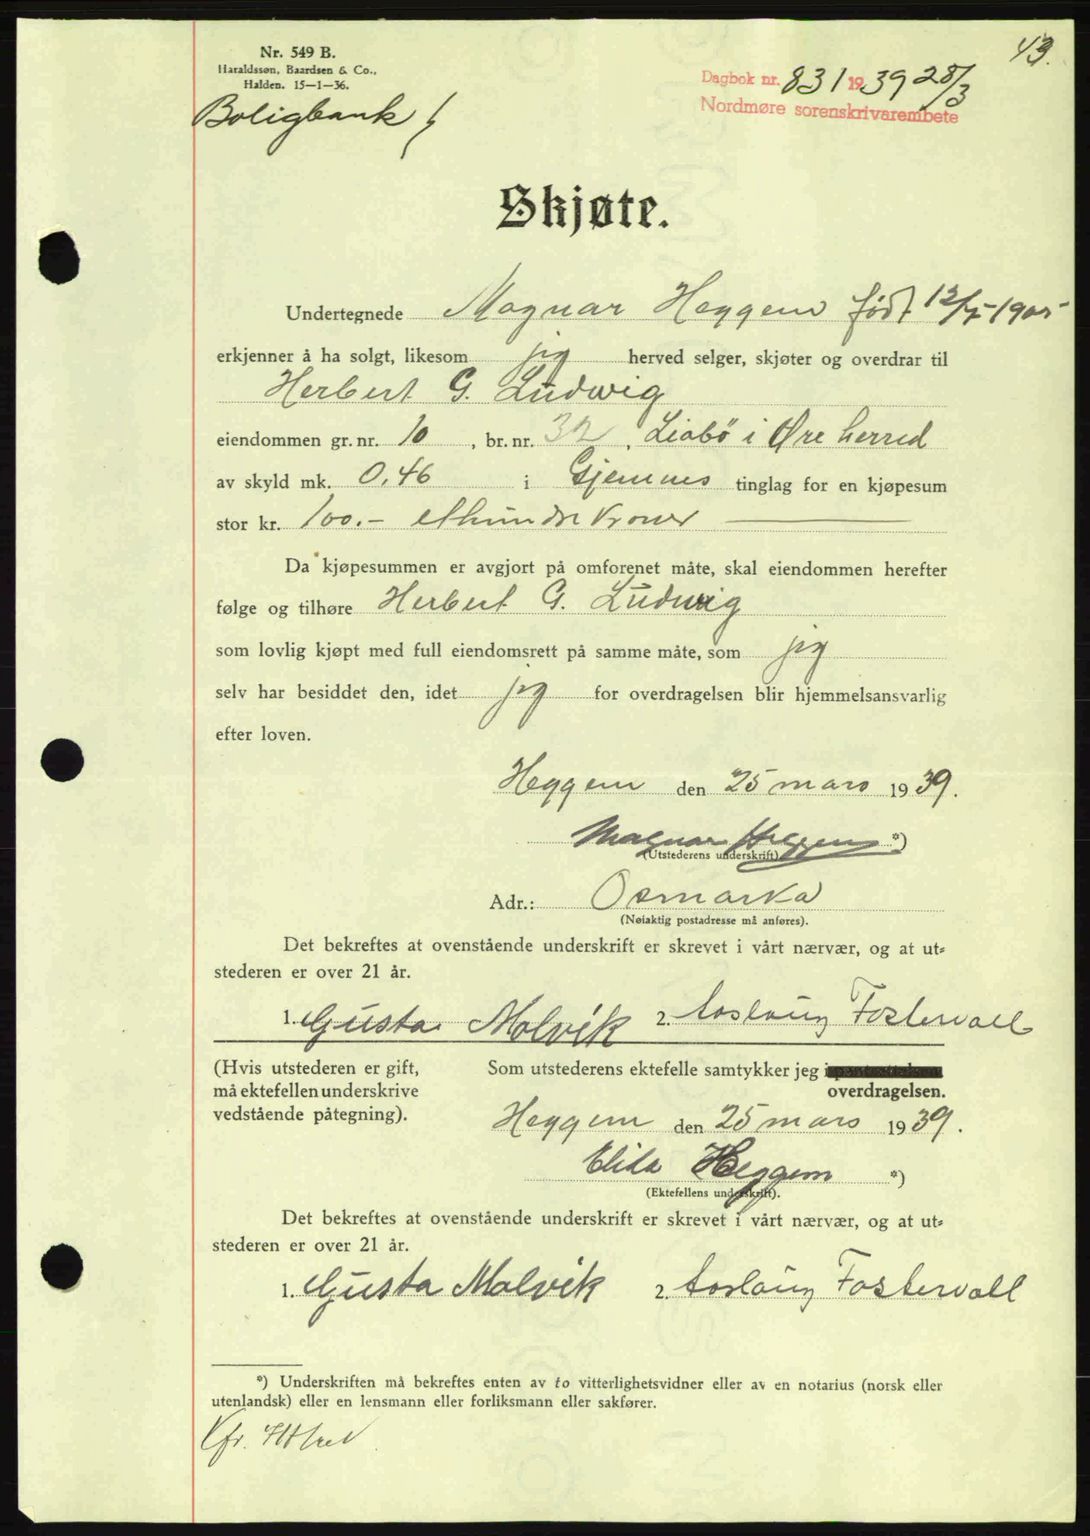 43.
Nr. 549 B.
Haraldssøn, Baardsen & Co.,
Halden. 15-1-36.
Dagbok nr. 831 1939 28/3
Nordmøre sorenskrivarembete
Boligbank
Skjøte.
Undertegnede Magnar Heggem født 12/5-1905
erkjenner å ha solgt, likesom jeg herved selger, skjøter og overdrar til
Herbert G. Ludwig
eiendommen gr. nr. 10, br. nr. 32, Liabö i Øre herred
av skyld mk. 0,46 i Gjemnes tinglag for en kjøpesum
stor kr. 100.- etthundre kroner
Da kjøpesummen er avgjort på omforenet måte, skal eiendommen herefter
følge og tilhøre Herbert G. Ludwig
som lovlig kjøpt med full eiendomsrett på samme måte, som jeg
selv har besiddet den, idet jeg for overdragelsen blir hjemmelsansvarlig
efter loven.
Heggem den 25 mars 1939.
Magnar Heggem *)
(Utstederens underskrift)
Adr.: Osmarka
(Nøiaktig postadresse må anføres).
Det bekreftes at ovenstående underskrift er skrevet i vårt nærvær, og at ut-
stederen er over 21 år.
1. Gusta Molvik 2. Aaslaug Fostervoll
(Hvis utstederen er gift, Som utstederens ektefelle samtykker jeg i
må ektefellen underskrive overdragelsen.
vedstående påtegning).
Heggem den 25 mars 1939.
Elida Heggem *)
(Ektefellens underskrift).
Det bekreftes at ovenstående underskrift er skrevet i vårt nærvær, og at ut-
stederen er over 21 år.
1. Gusta Molvik 2. Aaslaug Fostervoll
*) Underskriften må bekreftes enten av to vitterlighetsvidner eller av en notarius (norsk eller
utenlandsk) eller en lensmann eller forliksmann eller sakfører.